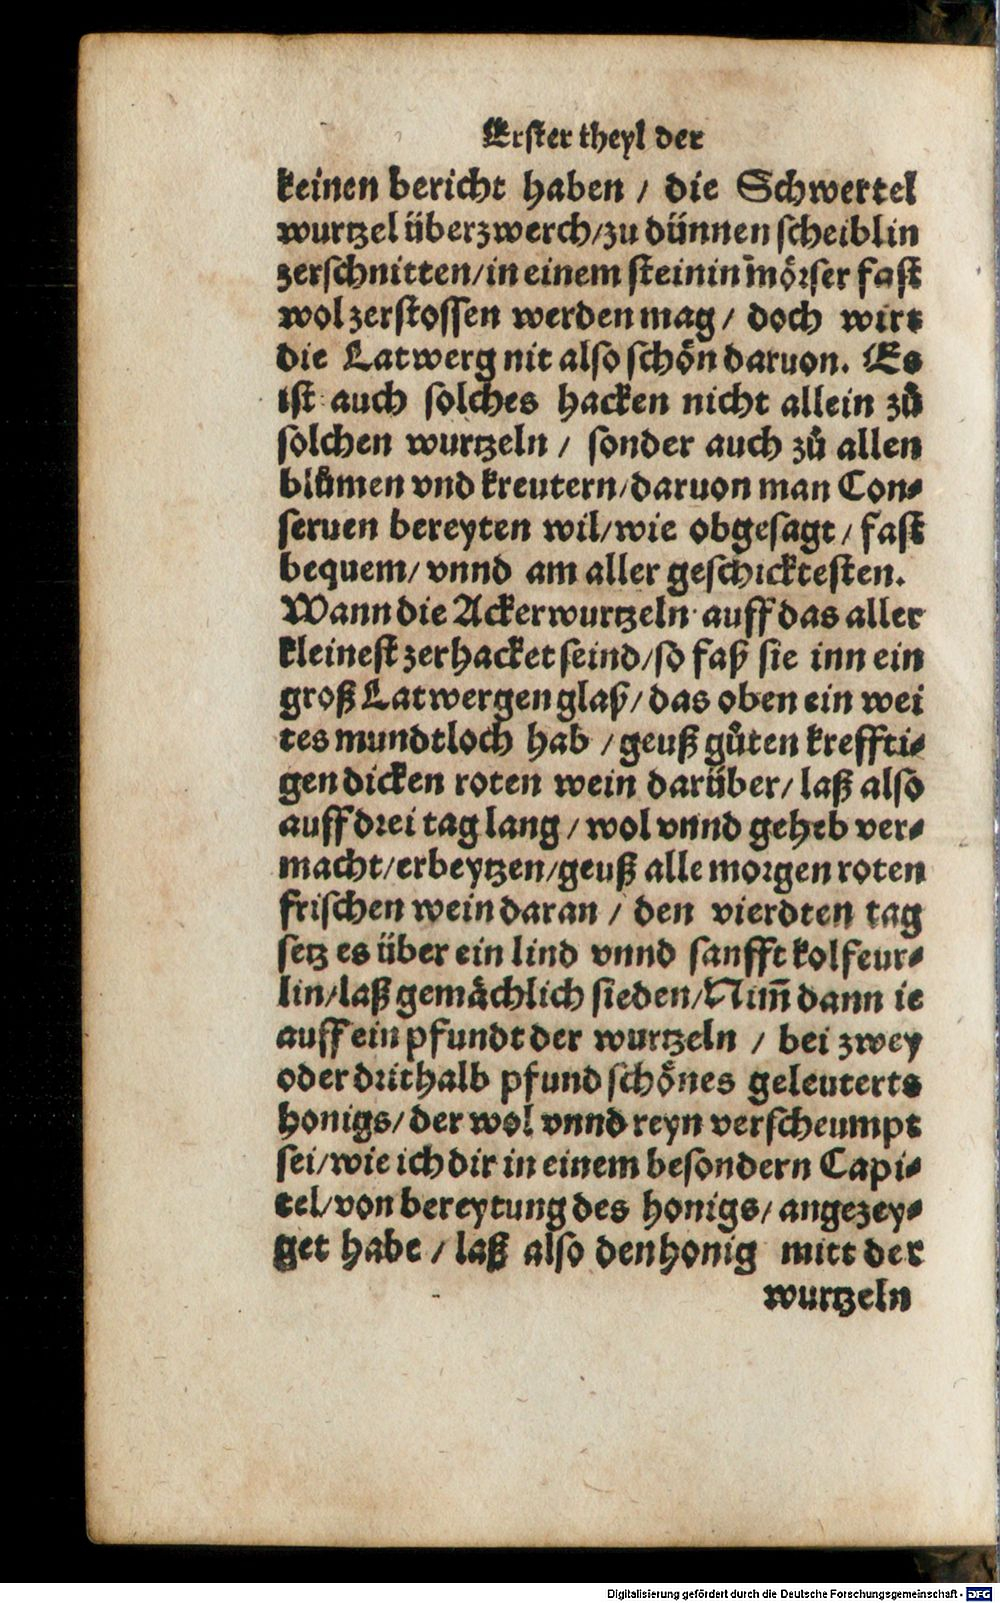 Erster theyl der
keinen bericht haben / die Schwertel
wurtzel überzwerch/zu dünnen scheiblin
zerschnitten/in einem steinin mörser fast
wol zerstossen werden mag / doch wirt
die Latwerg nit also schön daruon. Es
ist auch solches hacken nicht allein zů
solchen wurtzeln / sonder auch zů allen
blůmen vnd kreutern/daruon man Con⸗
seruen bereyten wil/wie obgesagt / fast
bequem/ vnnd am aller geschicktesten.
Wann die Ackerwurtzeln auff das aller
kleinest zerhacket seind/so faß sie inn ein
groß Latwergen glaß/ das oben ein wei
tes mundtloch hab / geuß gůten kreffti⸗
gen dicken roten wein darüber/ laß also
auff drei tag lang / wol vnnd geheb ver⸗
macht/erbeytzen/geuß alle morgen roten
frischen wein daran / den vierdten tag
setz es über ein lind vnnd sanfft kolfeur⸗
lin/laß gemächlich sieden/Nim̃ dann ie
auff ein pfundt der wurtzeln / bei zwey
oder drithalb pfund schönes geleuterts
honigs/ der wol vnnd reyn verscheumpt
sei/wie ich dir in einem besondern Capi⸗
tel/von bereytung des honigs/ angezey⸗
get habe / laß also den honig mitt der
wurtzeln
Digitalisierung gefördert durch die Deutsche Forschungsgemeinschaft - DFG